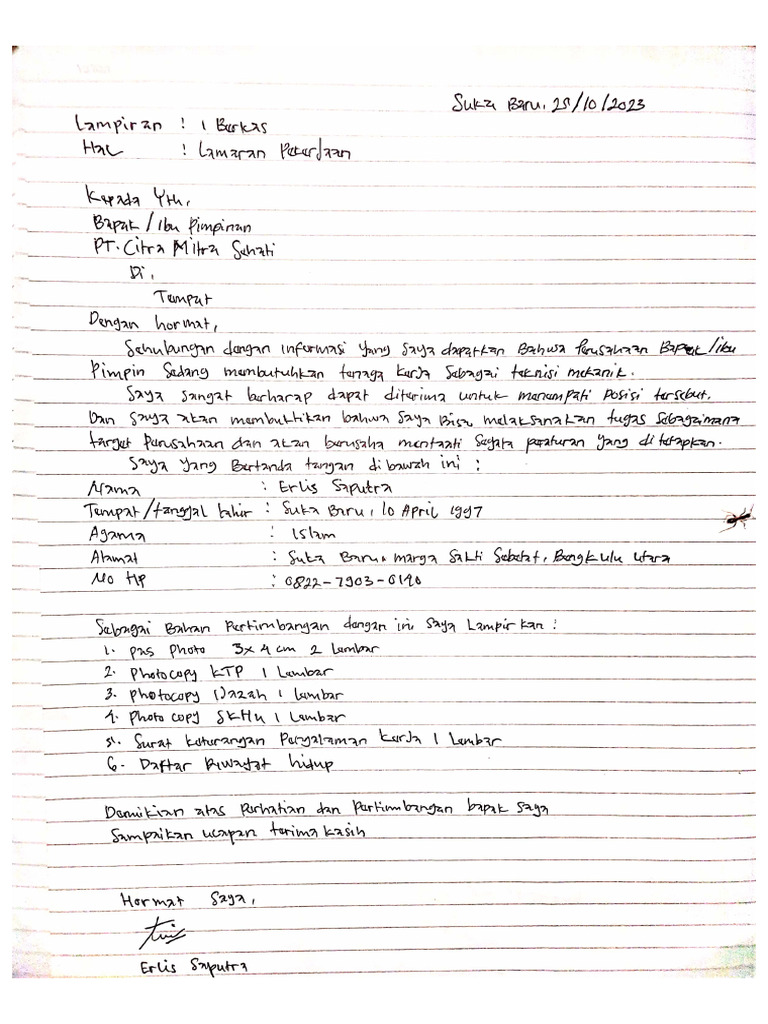 Suka Baru, 25/10/2023
Lampiran : 1 Berkas
Hal : Lamaran Pekerjaan
Kepada Yth,
Bapak/Ibu Pimpinan
PT. Citra Mitra Sehati
Di,
Tempat
Dengan hormat,
Sehubungan dengan informasi yang saya dapatkan Bahwa Perusahaan Bapak/ibu
Pimpin Sedang membutuhkan tenaga kerja Sebagai teknisi mekanik.
Saya sangat berharap dapat diterima untuk menempati posisi tersebut.
Dan saya akan membuktikan bahwa saya Bisa melaksanakan tugas Sebagaimana
target Perusahaan dan akan berusaha mentaati Segala peraturan yang di tetapkan.
Saya yang Bertanda tangan dibawah ini :
Nama : Erlis Saputra
Tempat/tanggal Lahir : Suka Baru, 10 April 1997
Agama : Islam
Alamat : Suka Baru, marga Sakti Sebelat, Bengkulu utara
No HP : 0822-7903-0140
Sebagai Bahan Pertimbangan dengan ini Saya Lampirkan :
1. pas photo 3x4 cm 2 Lembar
2. Photocopy KTP 1 Lembar
3. Photocopy Ijazah 1 Lembar
4. Photo copy SKHU 1 Lembar
5. Surat keterangan Pengalaman kerja 1 Lembar
6. Daftar Riwayat hidup
Demikian atas Perhatian dan Pertimbangan bapak saya
Sampaikan ucapan terima kasih
Hormat Saya,
Erlis Saputra